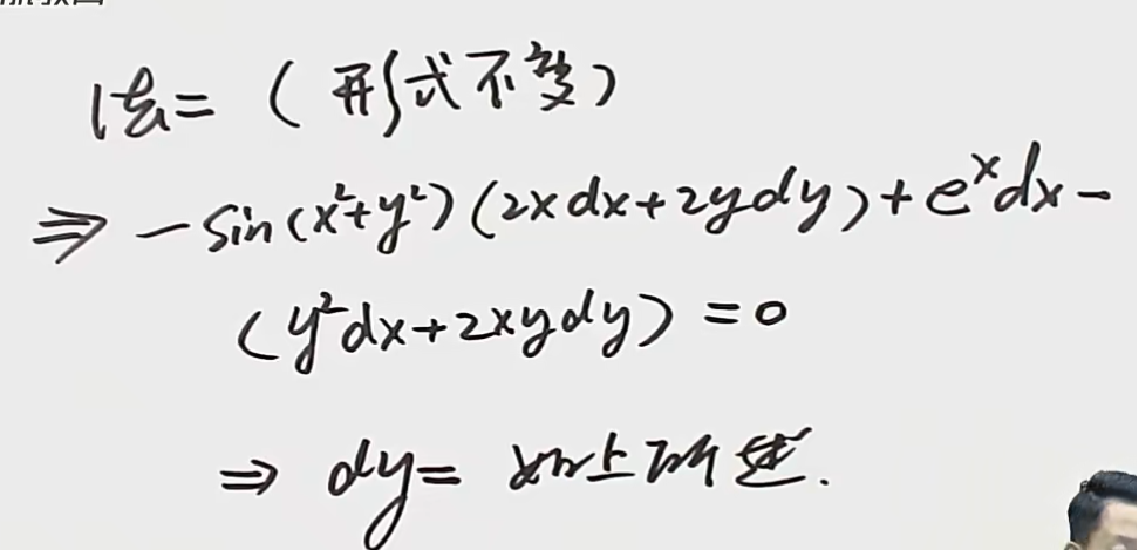 法二 (形式不变)
⇒ -sin(x²+y²)(2xdx+2ydy)+eˣdx-
(y²dx+2xydy)=0
⇒ dy= 如上所述.